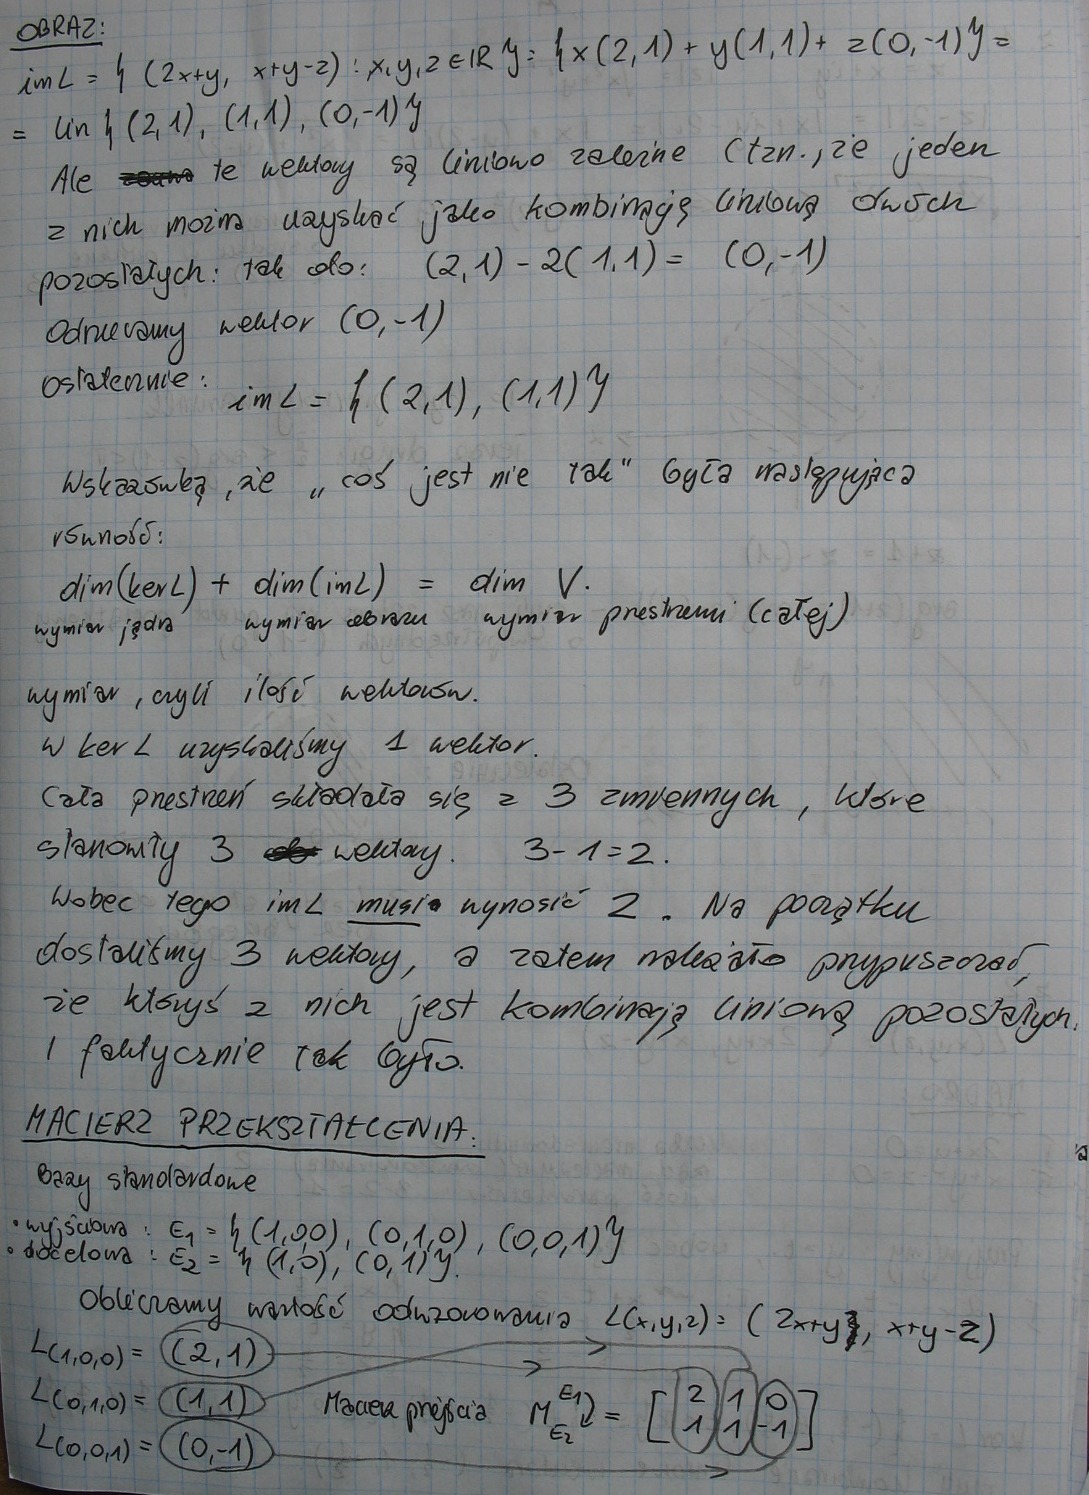 OBRAZ:
imL = { (2x+y, x+y-z) : x,y,z ∈ IR } = { x(2,1) + y(1,1) + z(0,-1) } =
= lin { (2,1), (1,1), (0,-1) }
Ale te wektory są liniowo zależne (tzn., że jeden
z nich można uzyskać jako kombinację liniową dwóch
pozostałych: tak oto: (2,1) - 2(1,1) = (0,-1)
Odrzucamy wektor (0,-1)
Ostatecznie: imL = { (2,1), (1,1) }
Wskazówką, że „coś jest nie tak" była następująca
równość:
dim(kerL) + dim(imL) = dim V.
wymiar jądra wymiar obrazu wymiar przestrzeni (całej)
wymiar, czyli ilość wektorów.
W ker L uzyskaliśmy 1 wektor.
Cała przestrzeń składała się z 3 zmiennych, które
stanowiły 3 wektory. 3-1=2.
Wobec tego imL musi wynosić 2. Na początku
dostaliśmy 3 wektory, a zatem należało przypuszczać,
że któryś z nich jest kombinacją liniową pozostałych.
I faktycznie tak było.
MACIERZ PRZEKSZTAŁCENIA:
Bazy standardowe
• wyjściowa : E₁ = { (1,0,0), (0,1,0), (0,0,1) }
• docelowa : E₂ = { (1,0), (0,1) }.
Obliczamy wartość odwzorowania L(x,y,z) = (2x+y, x+y-z)
L(1,0,0) = (2,1)
L(0,1,0) = (1,1) Macierz przejścia M E₁ E₂ = [ 2 1 0
L(0,0,1) = (0,-1) 1 1 -1 ]